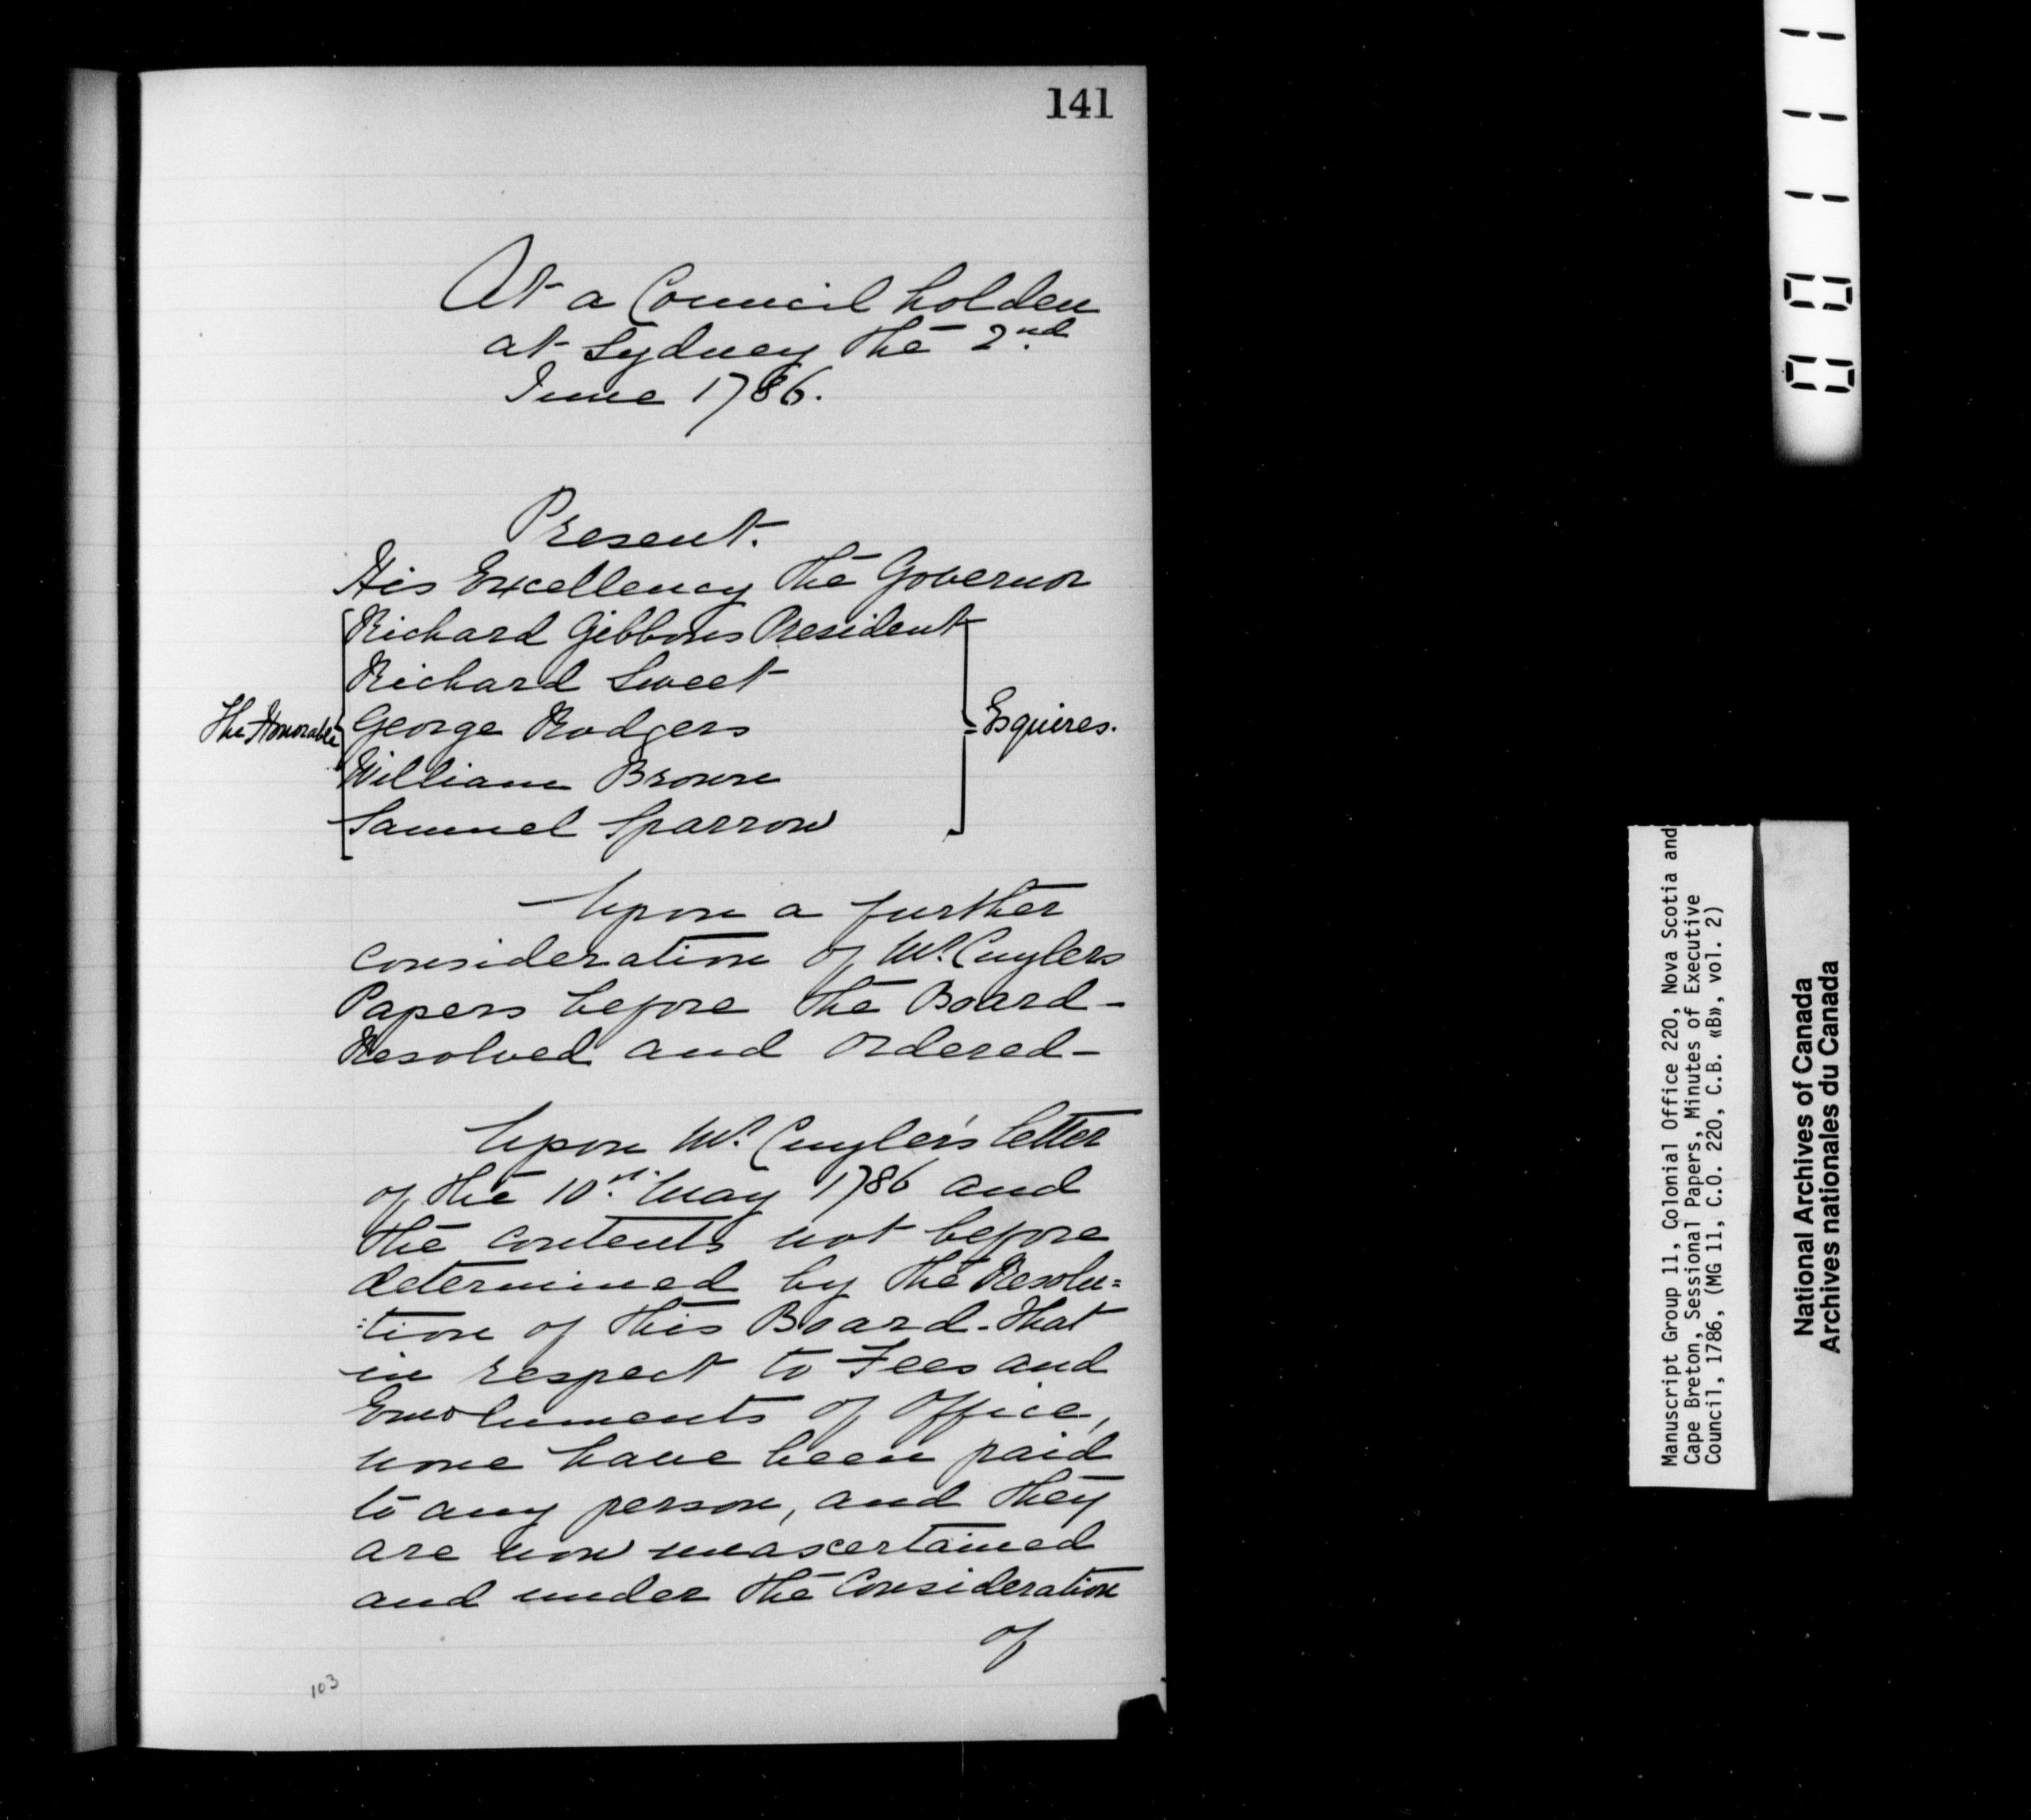 141
At a Council holden
at Sydney the 2nd
June 1786.
Present.
His Excellency the Governor
Richard Gibbons President
Richard Sweet
The Honorable George Rodgers Esquires.
William Brown
Samuel Sparrow
Upon a further
consideration of Mr. Cuylers
Papers before the Board -
Resolved and ordered -
Upon Mr. Cuyler's letter
of the 10th. May 1786 and
the contents not before
determined by the Resolu=
:tion of this Board. That
in respect to Fees and
Emoluments of Office,
none have been paid
to any person, and they
are now unascertained
and under the Consideration
of
103
00111
Manuscript Group 11, Colonial Office 220, Nova Scotia and
Cape Breton, Sessional Papers, Minutes of Executive
Council, 1786, (MG 11, C.O. 220, C.B. «B», vol. 2)
National Archives of Canada
Archives nationales du Canada